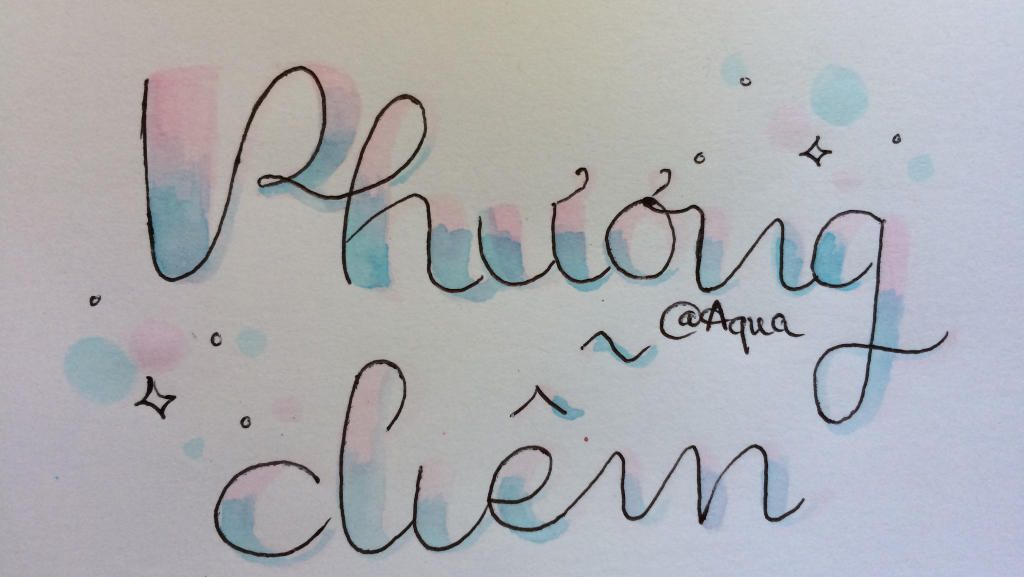 Phương
@Aqua
diễm